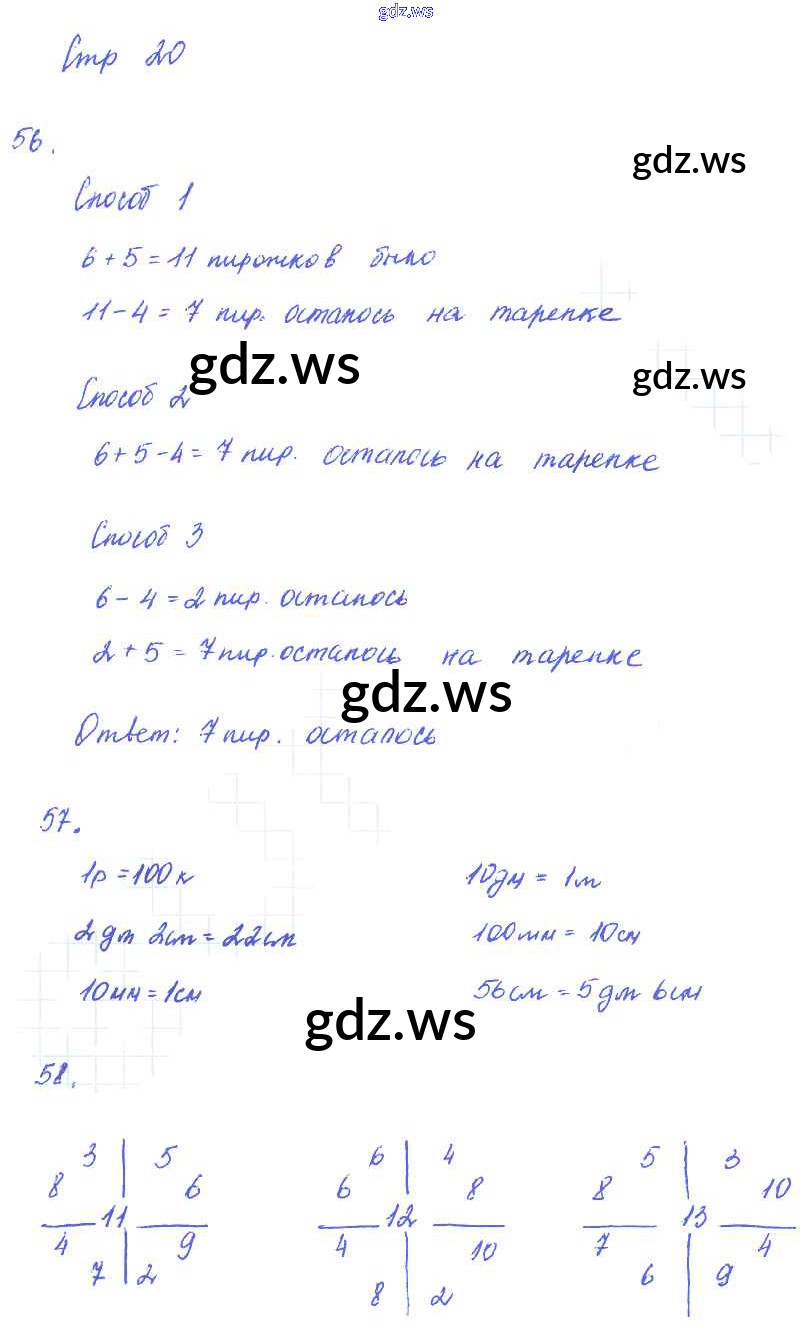 gdz.ws
Стр 20
56.
gdz.ws
Способ 1
6 + 5 = 11 пирожков было
11 - 4 = 7 пир. осталось на тарелке
gdz.ws
gdz.ws
Способ 2
6 + 5 - 4 = 7 пир. осталось на тарелке
Способ 3
6 - 4 = 2 пир. осталось
2 + 5 = 7 пир. осталось на тарелке
gdz.ws
Ответ: 7 пир. осталось
57.
1р = 100к 10дм = 1м
2дм 2см = 22см 100мм = 10см
10мм = 1см 56см = 5дм 6см
gdz.ws
58.
3 5 6 4 5 3
8 6 6 8 8 10
11 12 13
4 9 4 10 7 4
7 2 8 2 6 9